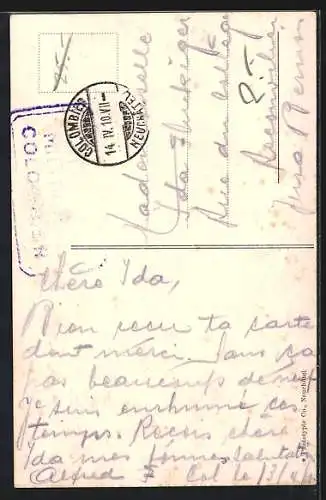 COLOMBIER
14.IV.10.VII-
NEUCHATEL
COLOMBIER
Mademoiselle
Ida
Rue du
Reconvilier
Jura Bernois
Chère Ida,
Bien reçu ta carte
dont merci. Dans ça
pas beaucoup de neuf
Je suis enrhumé ces
temps. Reçois chère
Ida mes bonnes salutations
Alfred
Col le 13/4/10
Phototypie Co., Neuchâtel